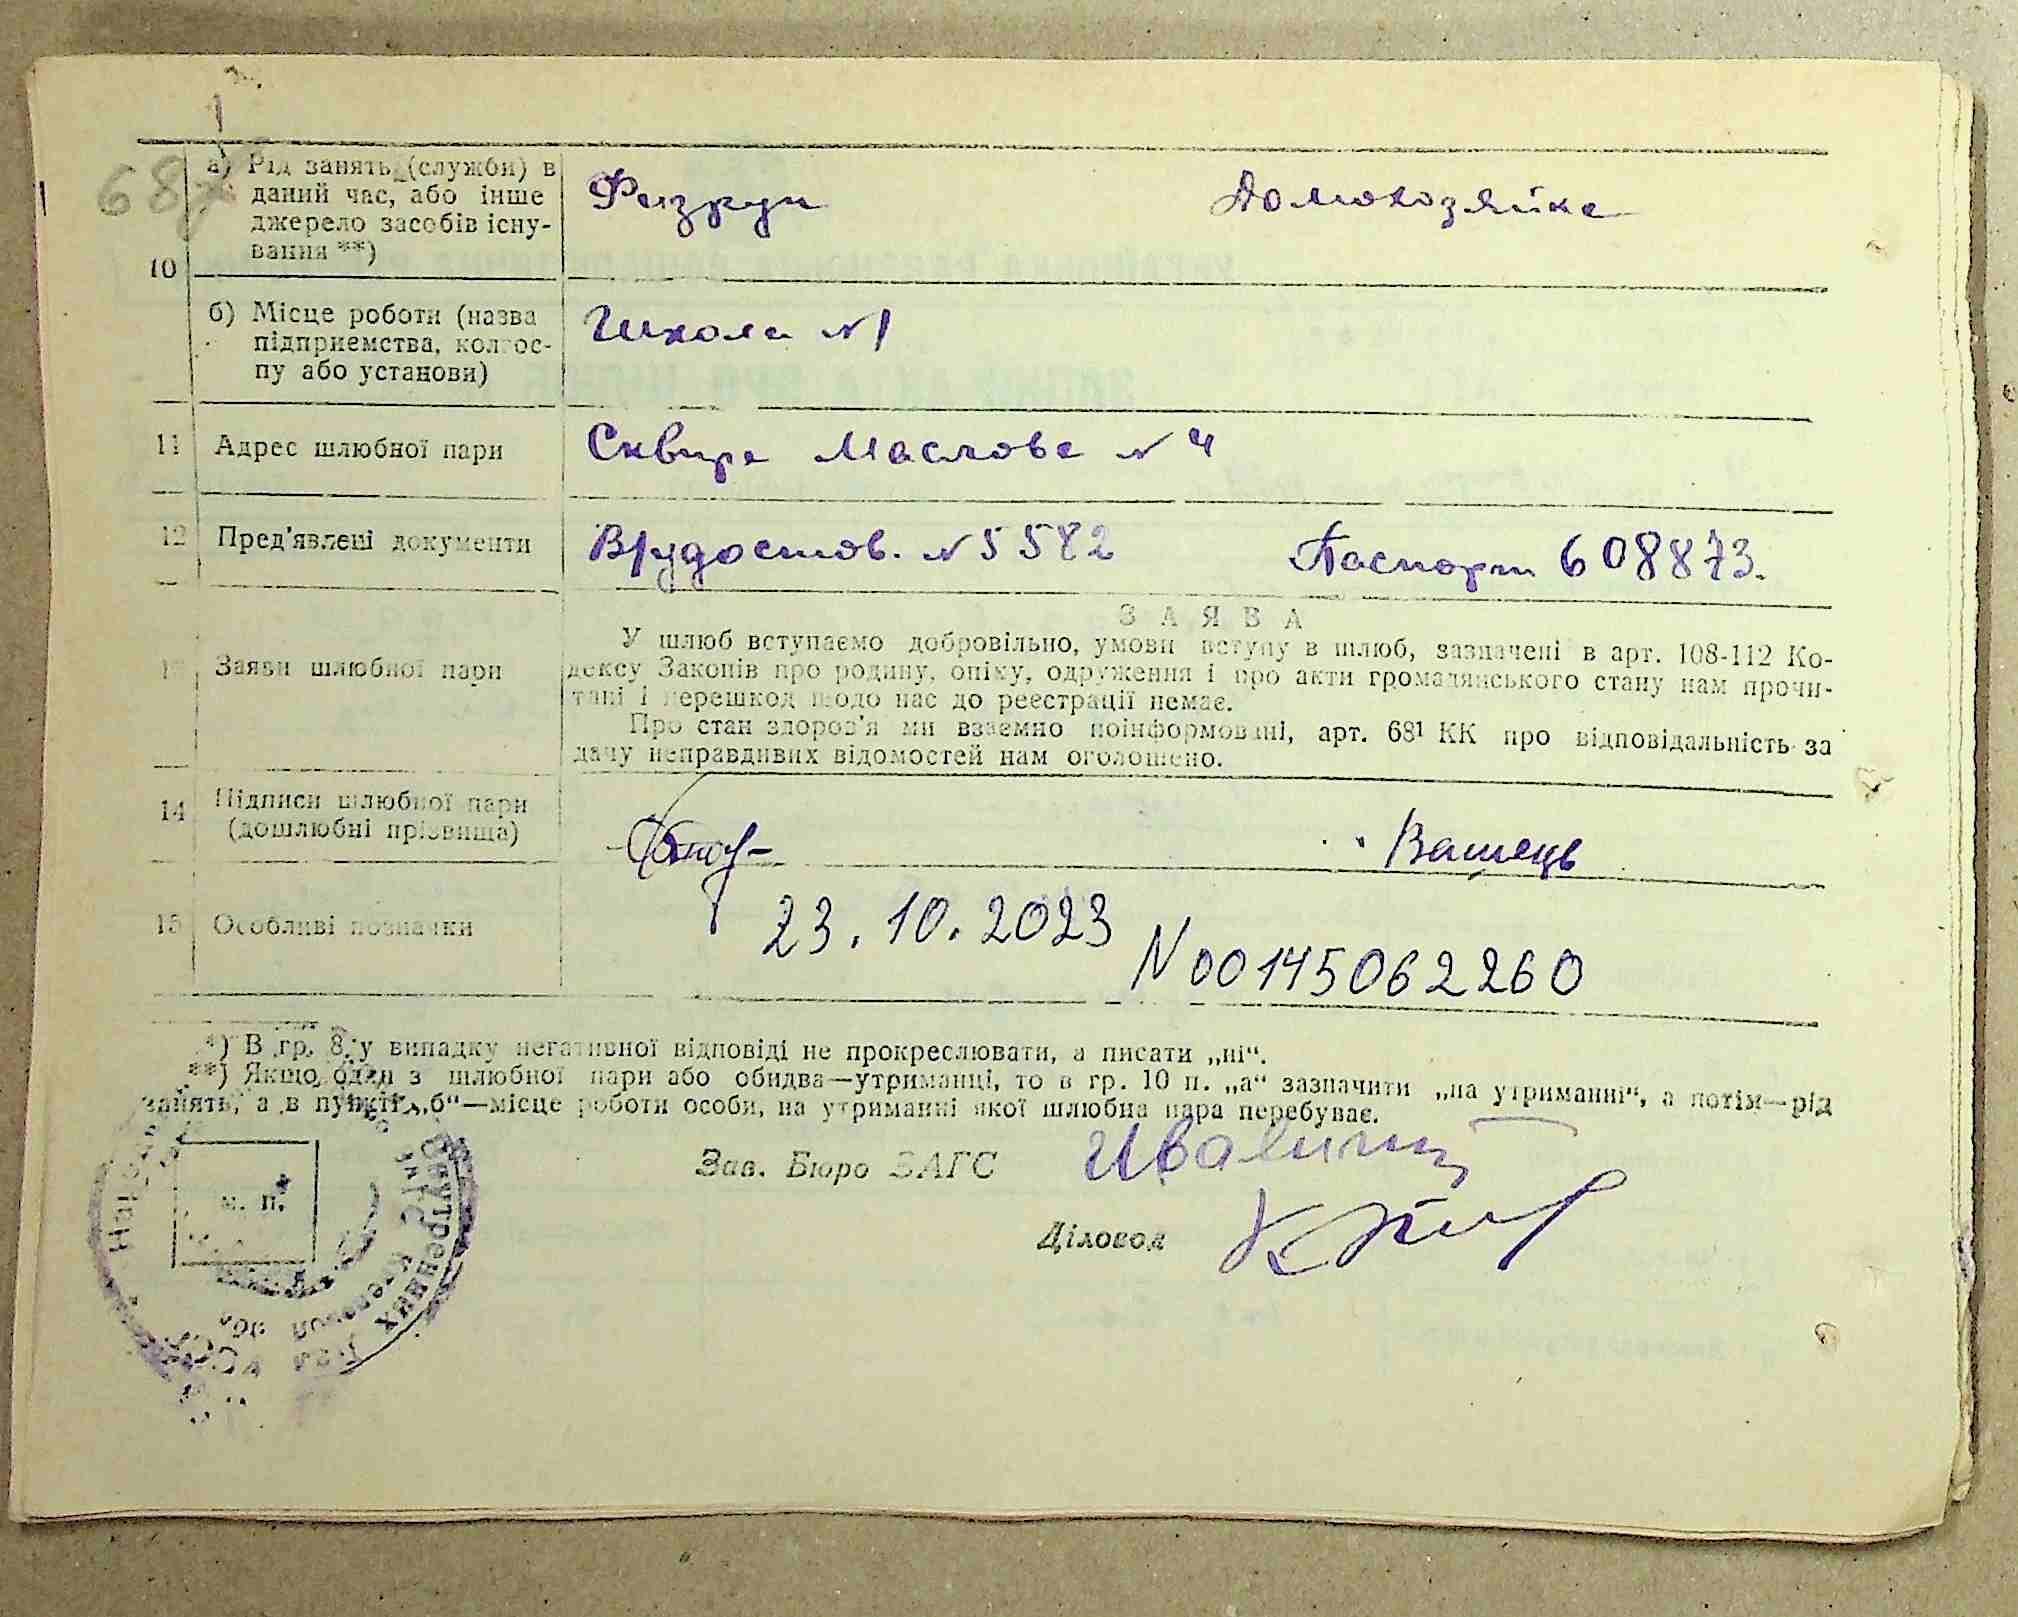 687
10
а) Рід занять (служби) в
даний час, або інше
джерело засобів існу-
вання **)
Физрук
Домохозяйка
б) Місце роботи (назва
підприємства, колгос-
пу або установи)
Школа №1
11 Адрес шлюбної пари
Сквира Маслова №4
12 Пред'явлені документи
Вр/удостов. №5582 Паспорт 608873.
Заяви шлюбної пари
ЗАЯВА
У шлюб вступаємо добровільно, умови вступу в шлюб, зазначені в арт. 108-112 Ко-
дексу Законів про родину, опіку, одруження і про акти громадянського стану нам прочи-
тані і перешкод щодо нас до реєстрації немає.
Про стан здоров'я ми взаємно поінформовані, арт. 68¹ КК про відповідальність за
дачу неправдивих відомостей нам оголошено.
14 Підписи шлюбної пари
(дошлюбні прізвища)
Вашець
15 Особливі позначки
23.10.2023
N00145062260
*) В гр. 8 у випадку негативної відповіді не прокреслювати, а писати „ні“.
**) Якщо один з шлюбної пари або обидва—утриманці, то в гр. 10 п. „а“ зазначити „на утриманні“, а потім—рід
занять, а в пункті „б“—місце роботи особи, на утриманні якої шлюбна пара перебуває.
Зав. Бюро ЗАГС
Діловод
м. п.
Внутренних